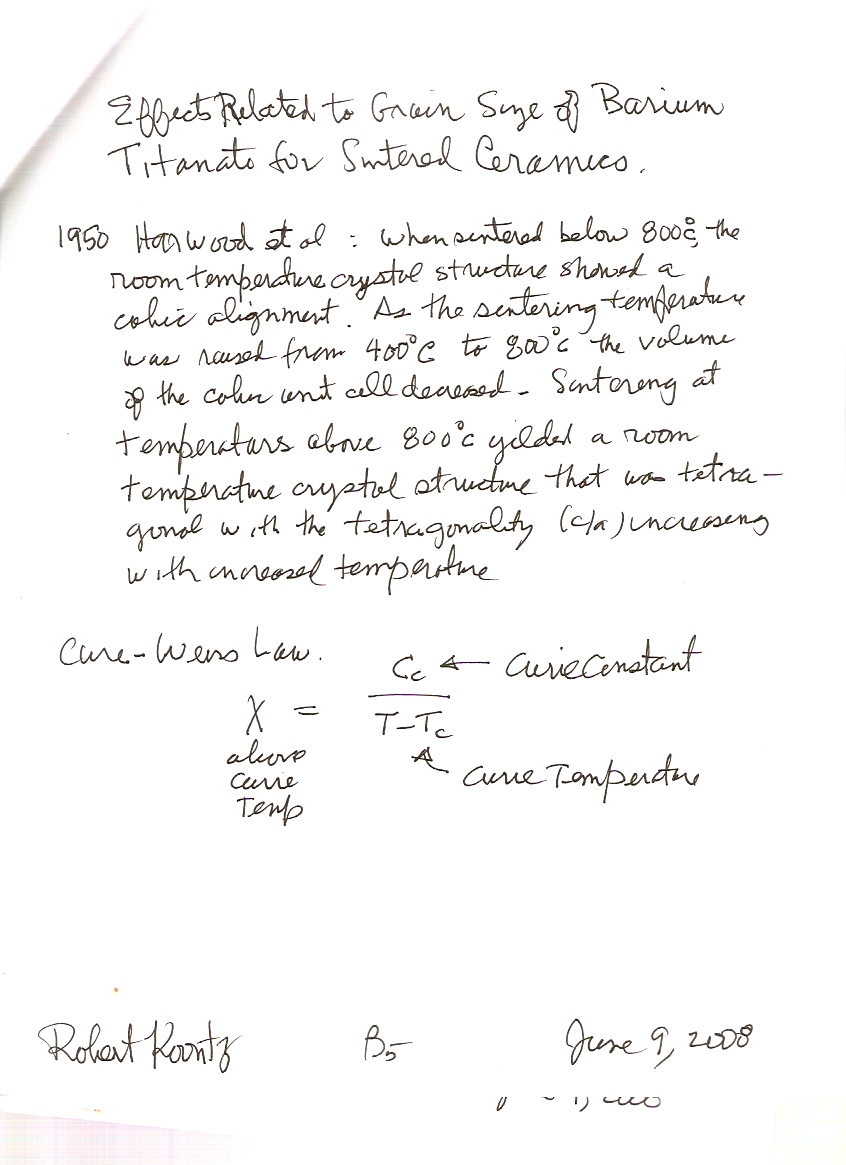 Effects Related to Grain Size of Barium
Titanate for Sintered Ceramics.
1950 Harwood et al : when sintered below 800°C, the
room temperature crystal structure showed a
cubic alignment. As the sintering temperature
was raised from 400°C to 800°C the volume
of the cubic unit cell decreased - Sintering at
temperatures above 800°C yielded a room
temperature crystal structure that was tetra-
gonal with the tetragonality (c/a) increasing
with increased temperature
Curie-Weiss Law.
Cc ← Curie Constant
X = ―――
T-Tc
above
Curie
Temp
Curie Temperature
Robert Koontz B5 June 9, 2008